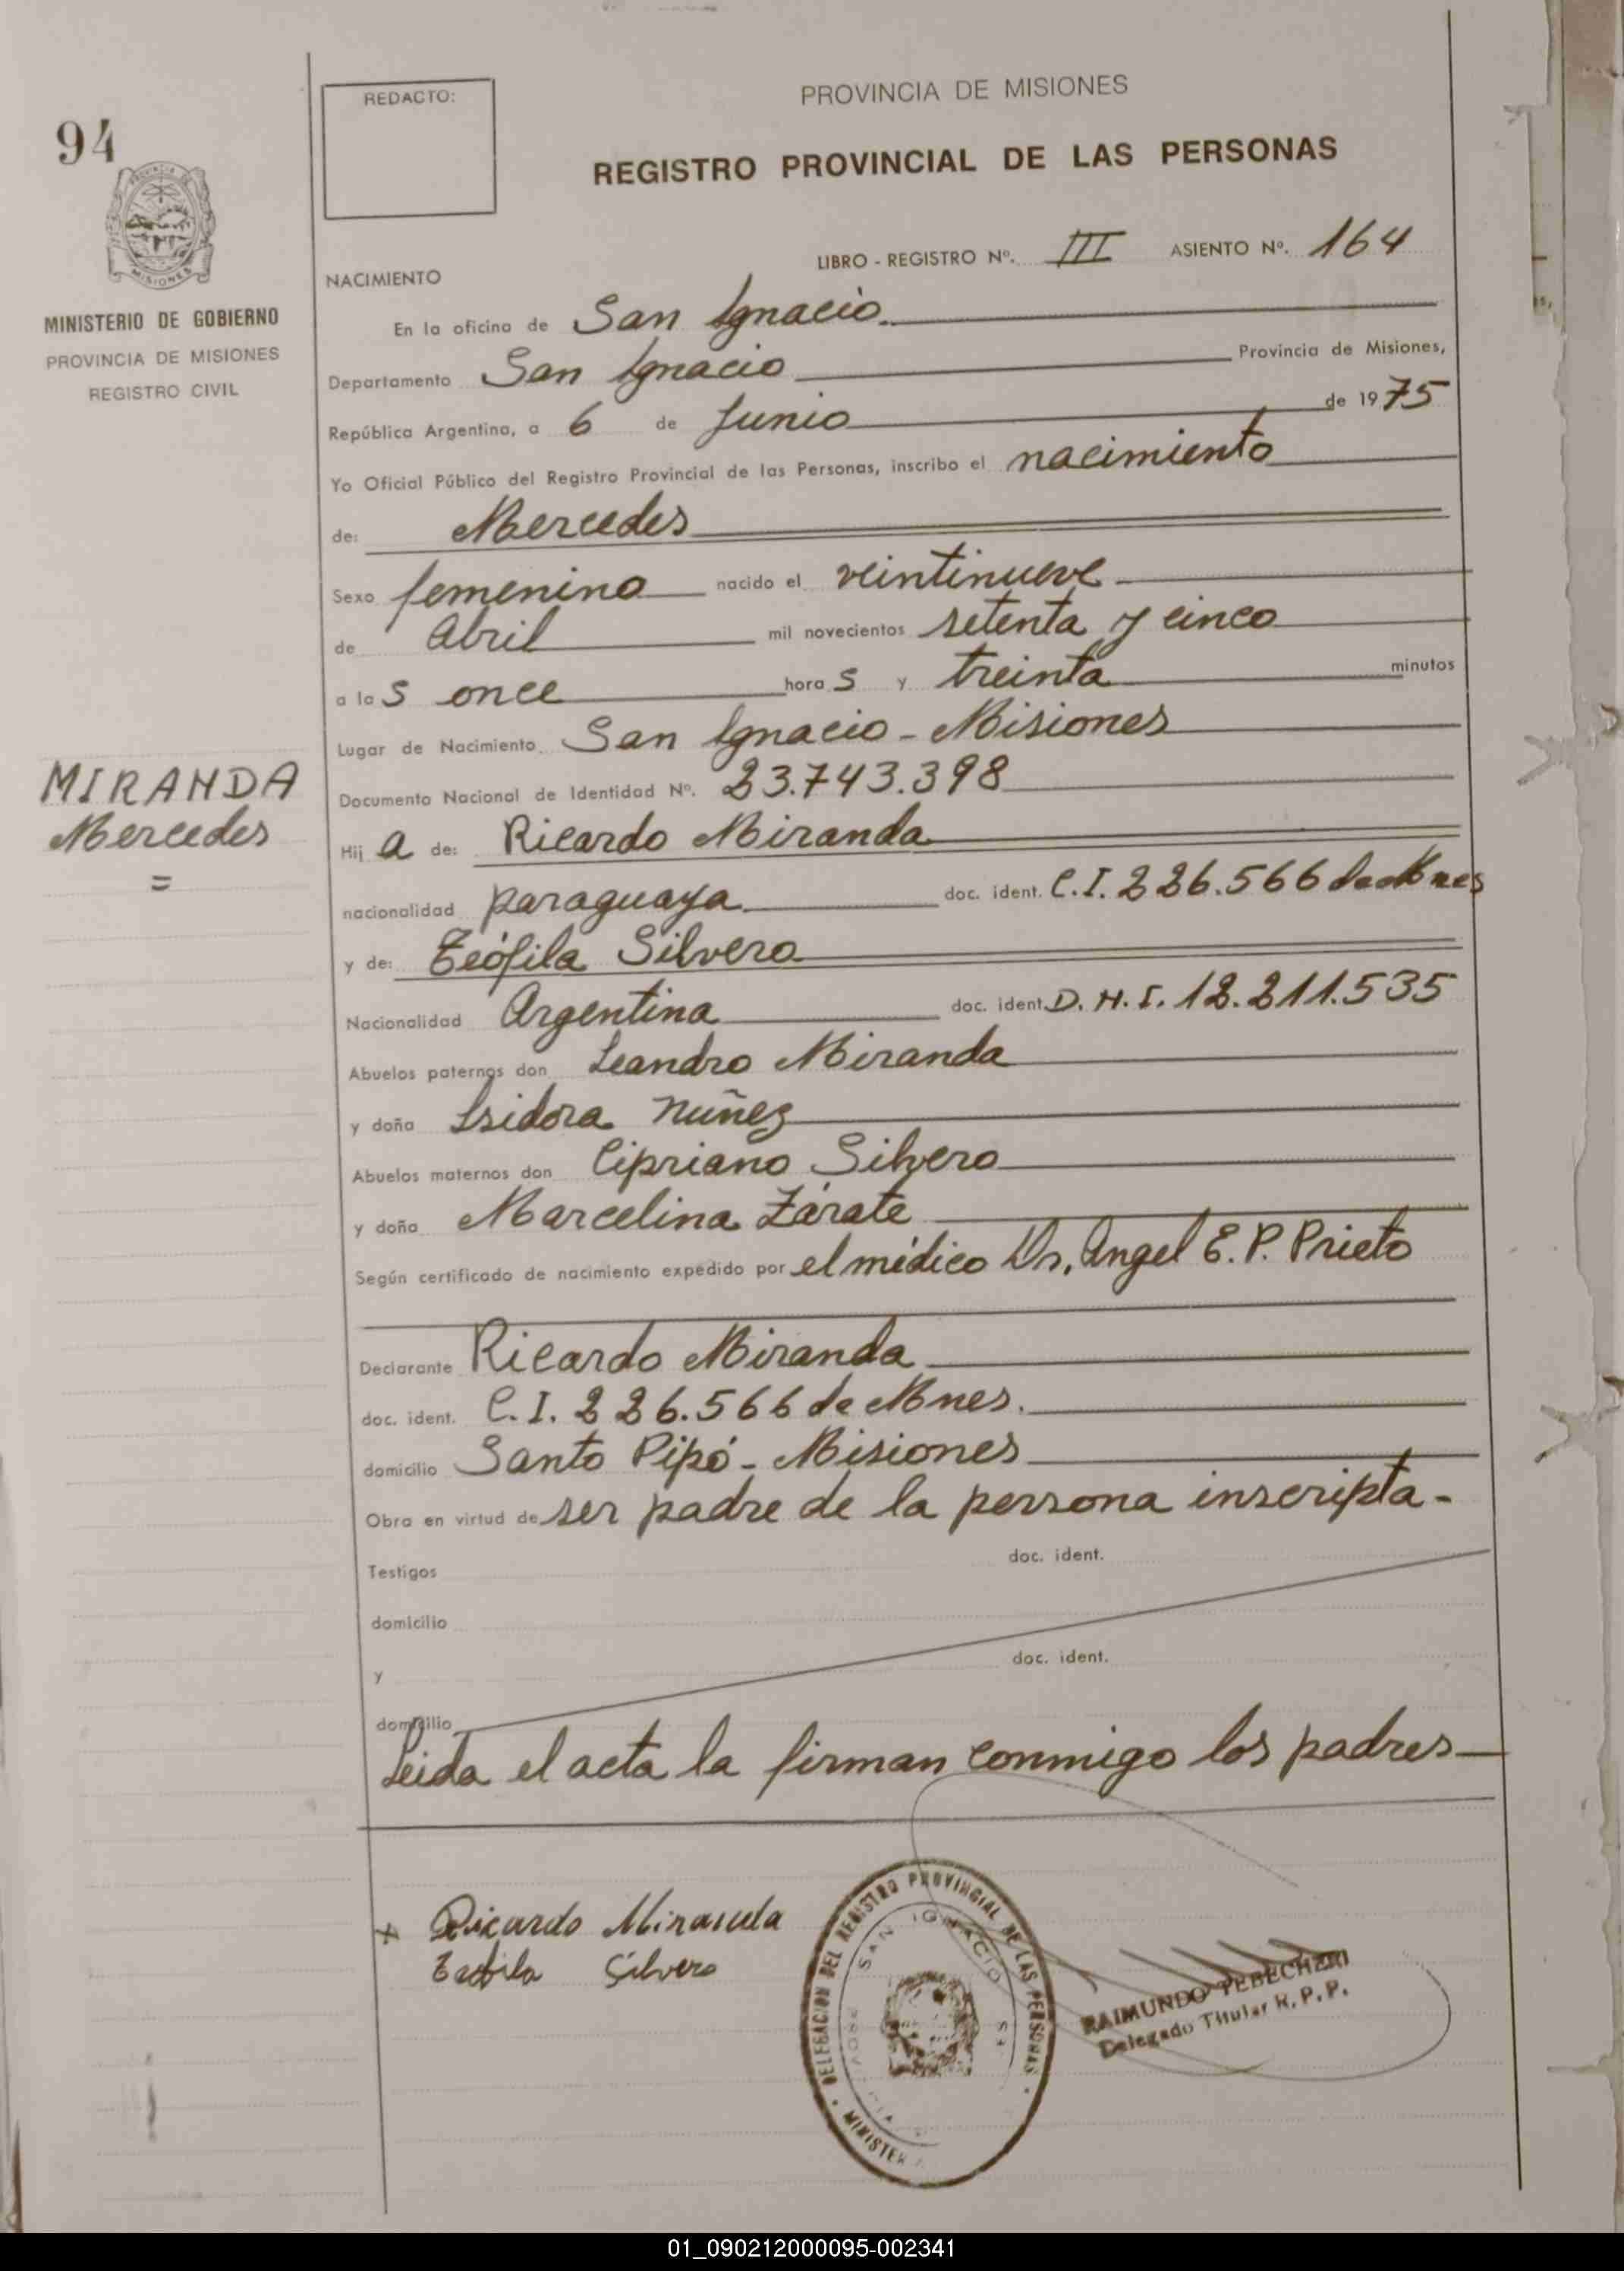 94
REDACTO:
PROVINCIA DE MISIONES
REGISTRO PROVINCIAL DE LAS PERSONAS
MISIONES
MINISTERIO DE GOBIERNO
PROVINCIA DE MISIONES
REGISTRO CIVIL
LIBRO - REGISTRO Nº. III ASIENTO Nº. 164
NACIMIENTO
En la oficina de San Ignacio
Departamento San Ignacio Provincia de Misiones,
República Argentina, a 6 de Junio de 1975
Yo Oficial Público del Registro Provincial de las Personas, inscribo el nacimiento
de: Mercedes
Sexo femenino nacido el veintinueve
de Abril mil novecientos setenta y cinco
a las once horas y treinta minutos
Lugar de Nacimiento San Ignacio - Misiones
MIRANDA
Mercedes
=
Documento Nacional de Identidad Nº. 23.743.398
Hija de: Ricardo Miranda
nacionalidad paraguaya doc. ident. C.I. 226.566 de Mnes
y de: Teófila Silvero
Nacionalidad Argentina doc. ident. D.N.I. 12.211.535
Abuelos paternos don Leandro Miranda
y doña Isidora Nuñez
Abuelos maternos don Cipriano Silvero
y doña Marcelina Zárate
Según certificado de nacimiento expedido por el médico Dr. Angel E.P. Prieto
Declarante Ricardo Miranda
doc. ident. C.I. 226.566 de Mnes.
domicilio Santo Pipó - Misiones
Obra en virtud de ser padre de la persona inscripta -
Testigos doc. ident.
domicilio
y doc. ident.
domicilio
Leida el acta la firman conmigo los padres
+ Ricardo Miranda
Silvero
DELEGACION DEL REGISTRO PROVINCIAL DE LAS PERSONAS
SAN IGNACIO
RAIMUNDO
Delegado Titular R.P.P.
01_090212000095-002341